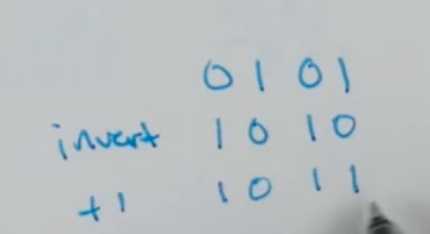 0 1 0 1
invert 1 0 1 0
+1 1 0 1 1